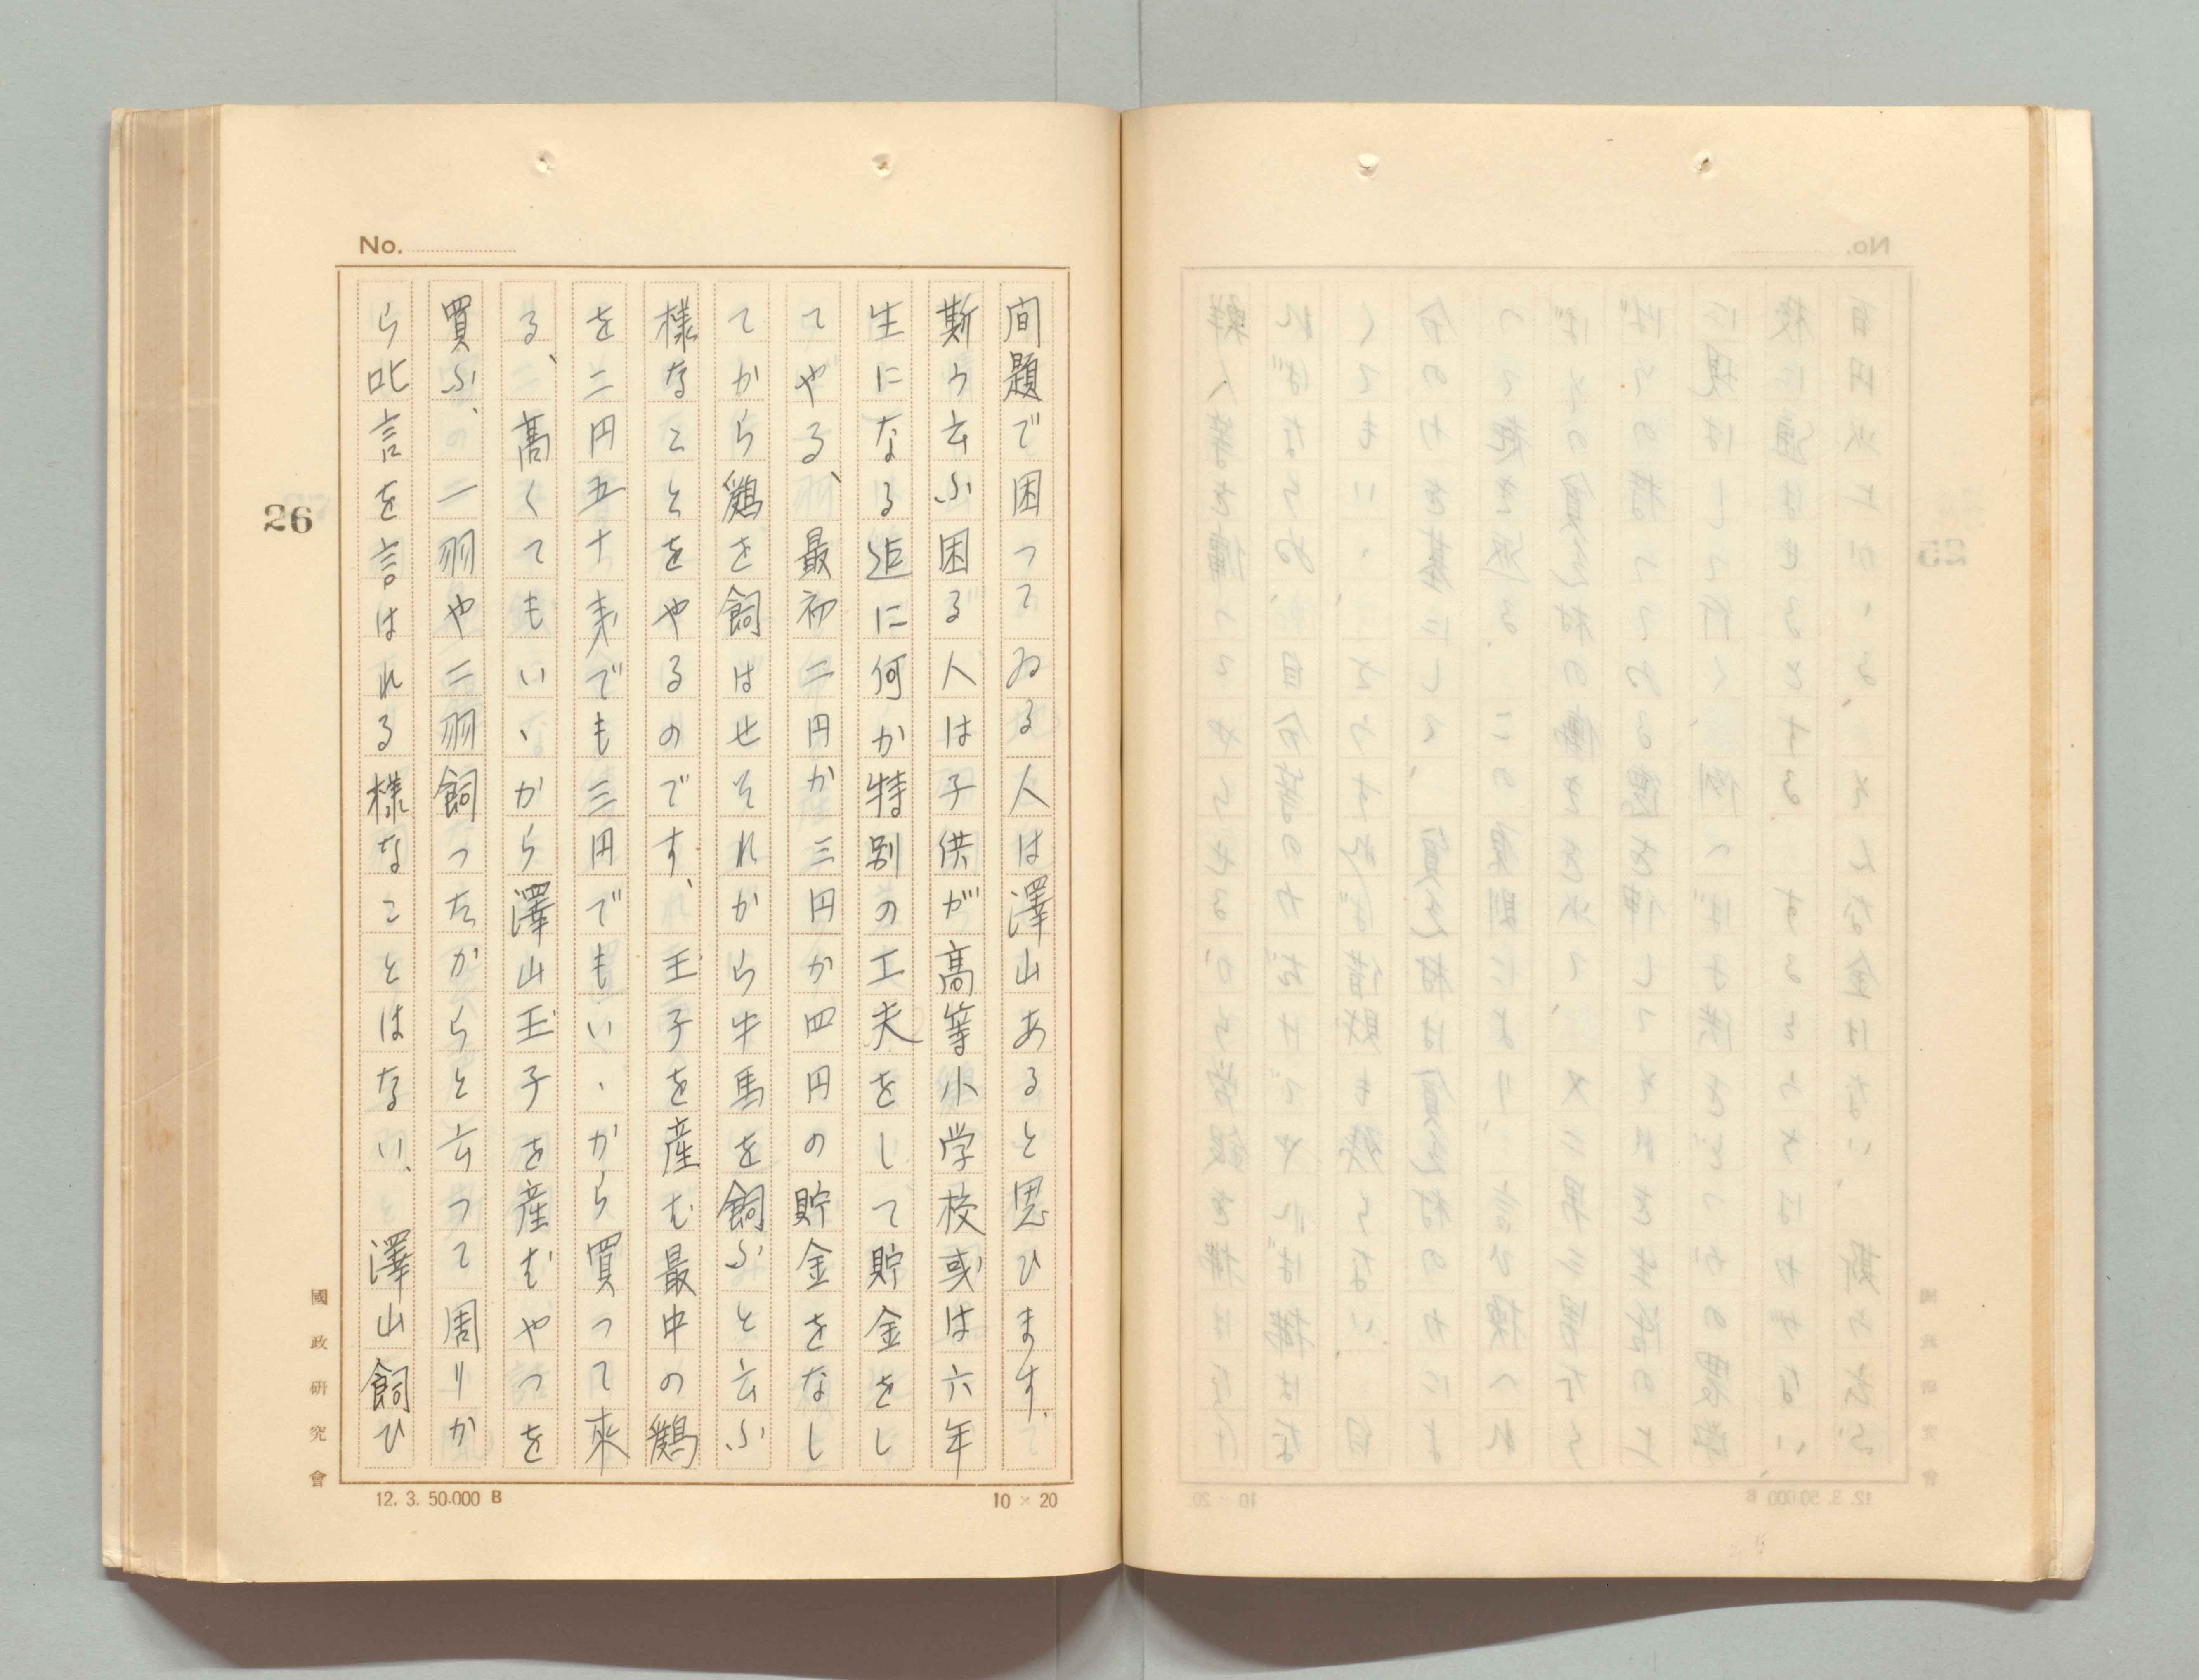 No.
問題で困ってゐる人は澤山あると思ひます、
斯う云ふ困る人は子供が高等小学校或は六年
生になる迄に何か特別の工夫をして貯金をし
てやる、最初二円か三円か四円の貯金をなし
てから鶏を飼はせそれから牛馬を飼ふと云ふ
様なことをやるのです、玉子を産む最中の鶏
を二円五十銭でも三円でもいゝから買って来
る、高くてもいゝから澤山玉子を産むやつを
買ふ、一羽や二羽飼ったからと云って周りか
ら叱言を言はれる様なことはない、澤山飼ひ
26
國政研究會
12. 3. 50.000 B
10 × 20